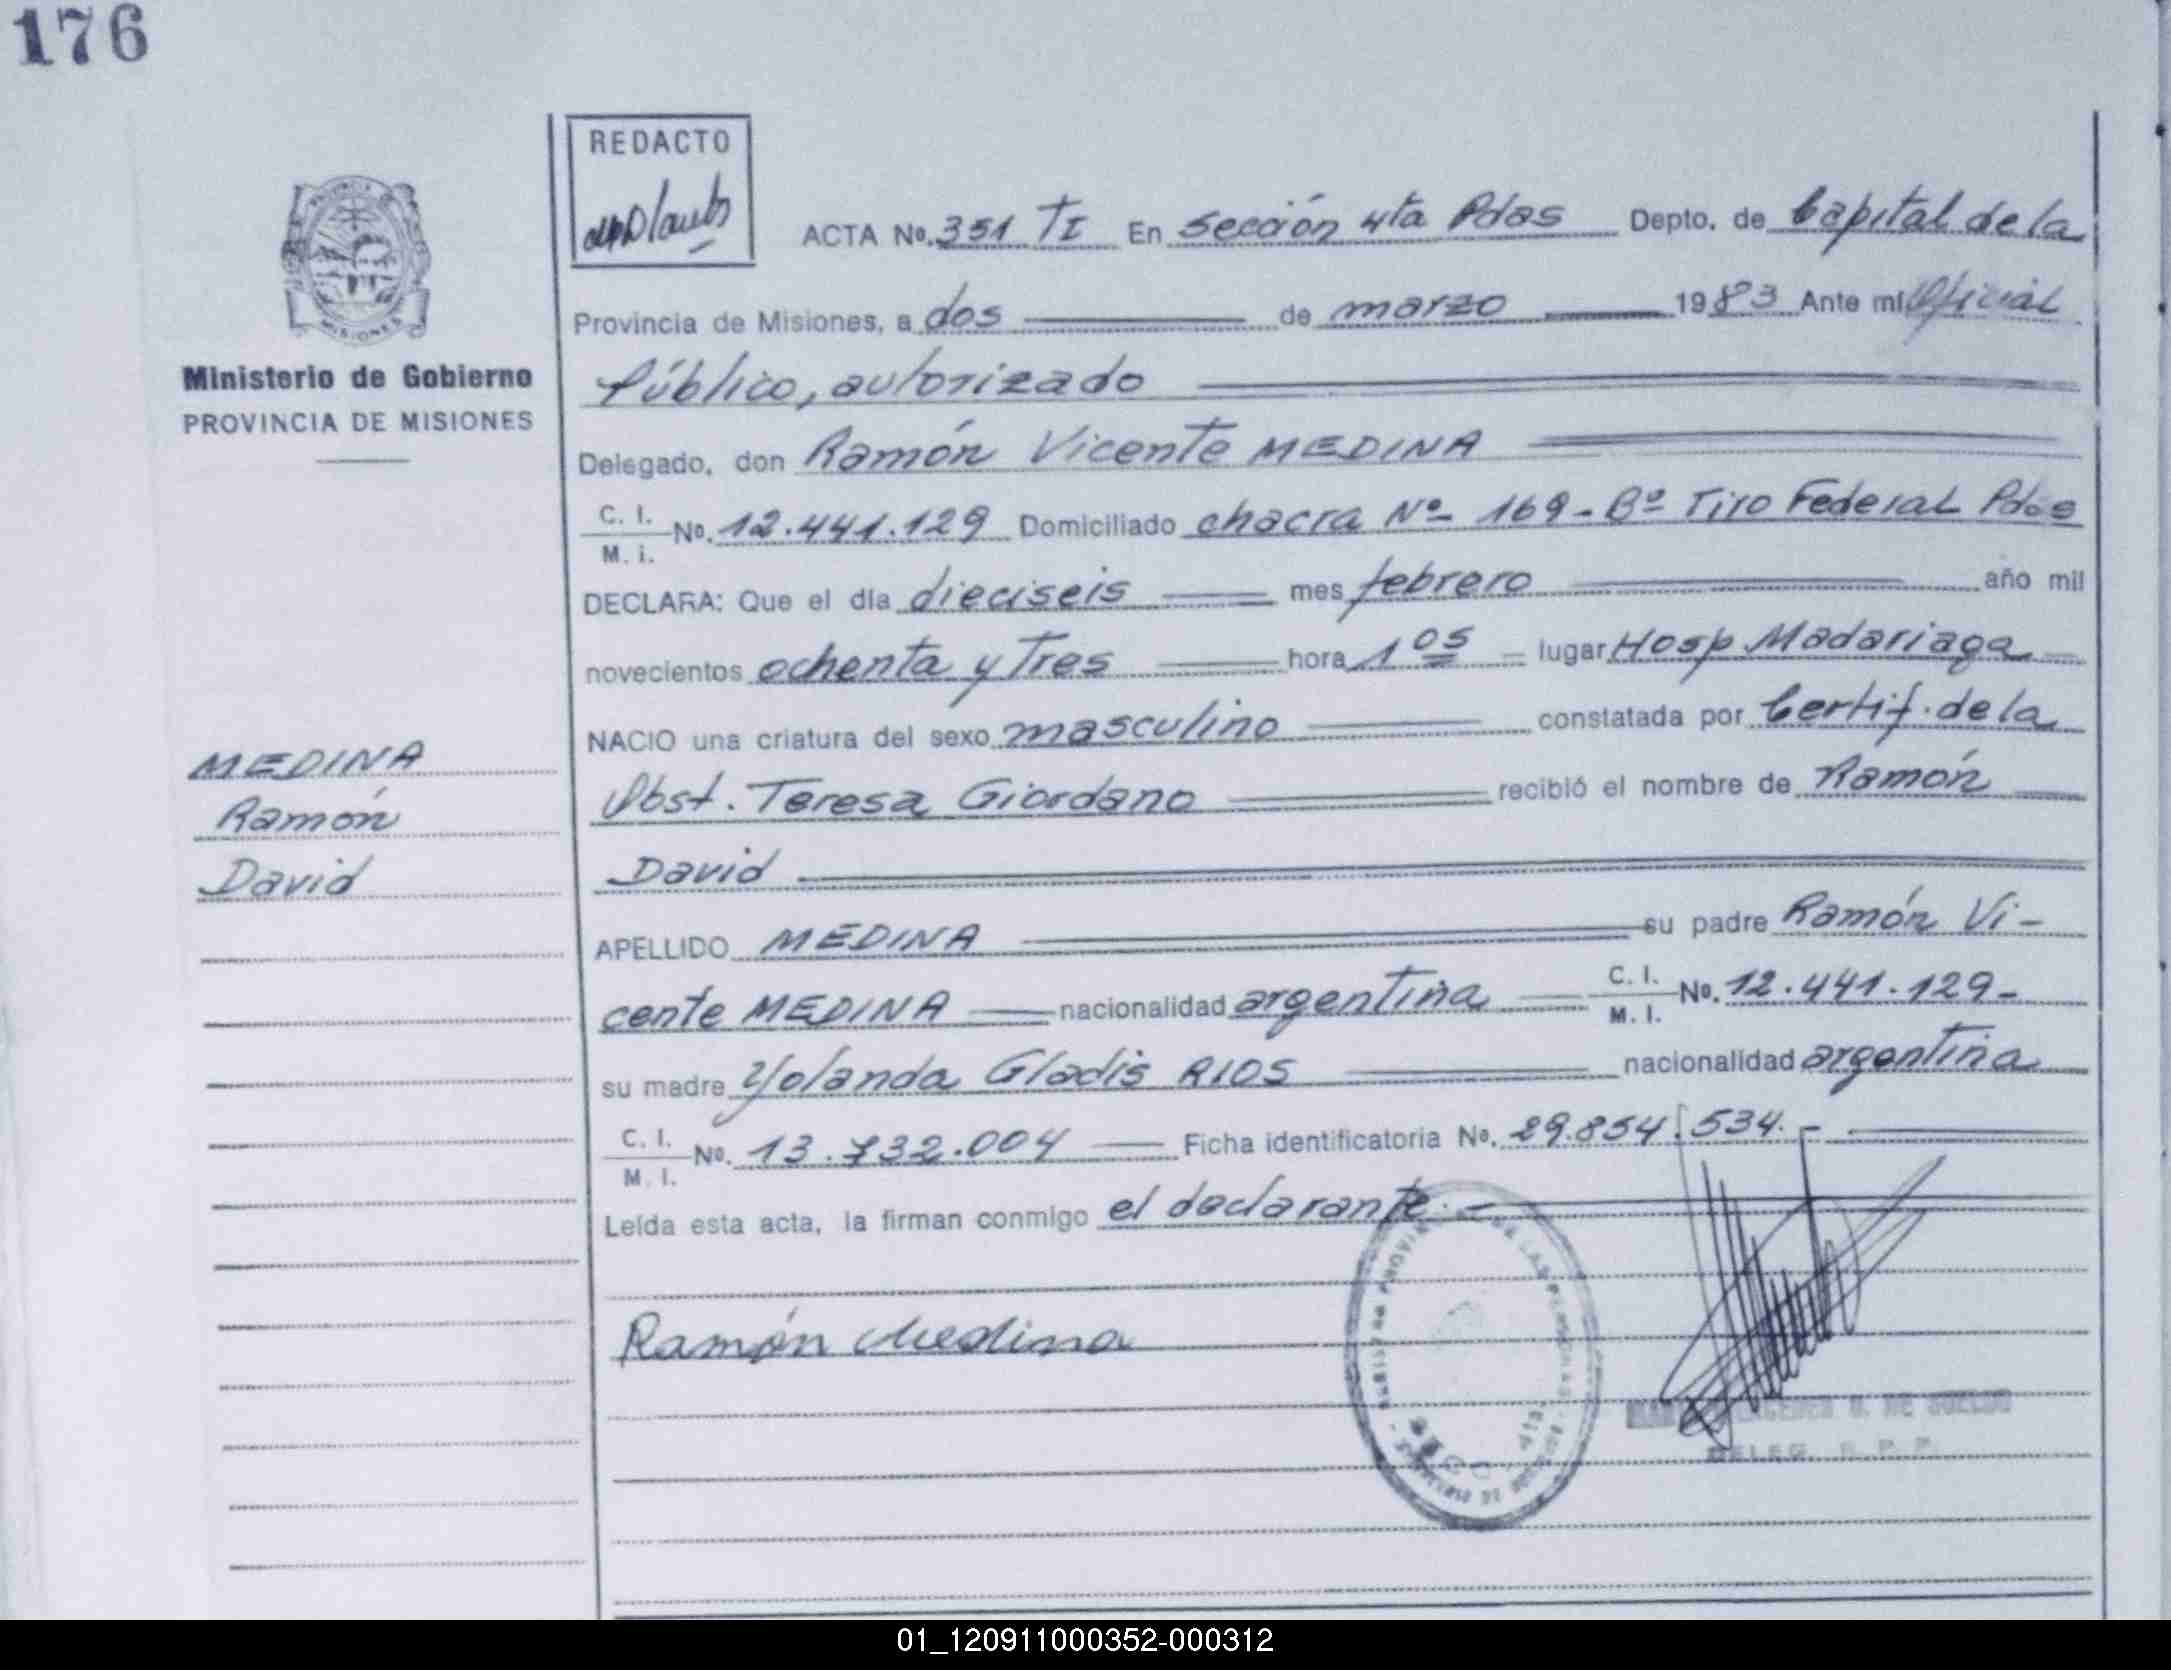 176
REDACTO
ACTA No. 351 TI En Sección 4ta Pdas Depto. de Capital de la
Provincia de Misiones, a dos de marzo 1983 Ante mí Oficial
Ministerio de Gobierno
PROVINCIA DE MISIONES
Público, autorizado
Delegado, don Ramón Vicente MEDINA
C. I.
M. i. No. 12.441.129 Domiciliado chacra Nº 169 - Bº Tiro Federal Pdas
DECLARA: Que el día dieciseis mes febrero año mil
novecientos ochenta y Tres hora 1 05 lugar Hosp Madariaga
NACIO una criatura del sexo masculino constatada por Certif. de la
Obst. Teresa Giordano recibió el nombre de Ramón
David
MEDINA
Ramón
David
APELLIDO MEDINA su padre Ramón Vi-
cente MEDINA nacionalidad argentina C. I.
M. I. No. 12.441.129-
su madre Yolanda Gladis RIOS nacionalidad argentina
C. I.
M. I. No. 13.732.004 Ficha identificatoria No. 29.854.534.-
Leída esta acta, la firman conmigo el declarante.-
Ramón Medina
DELEG. R. P. P.
01_120911000352-000312